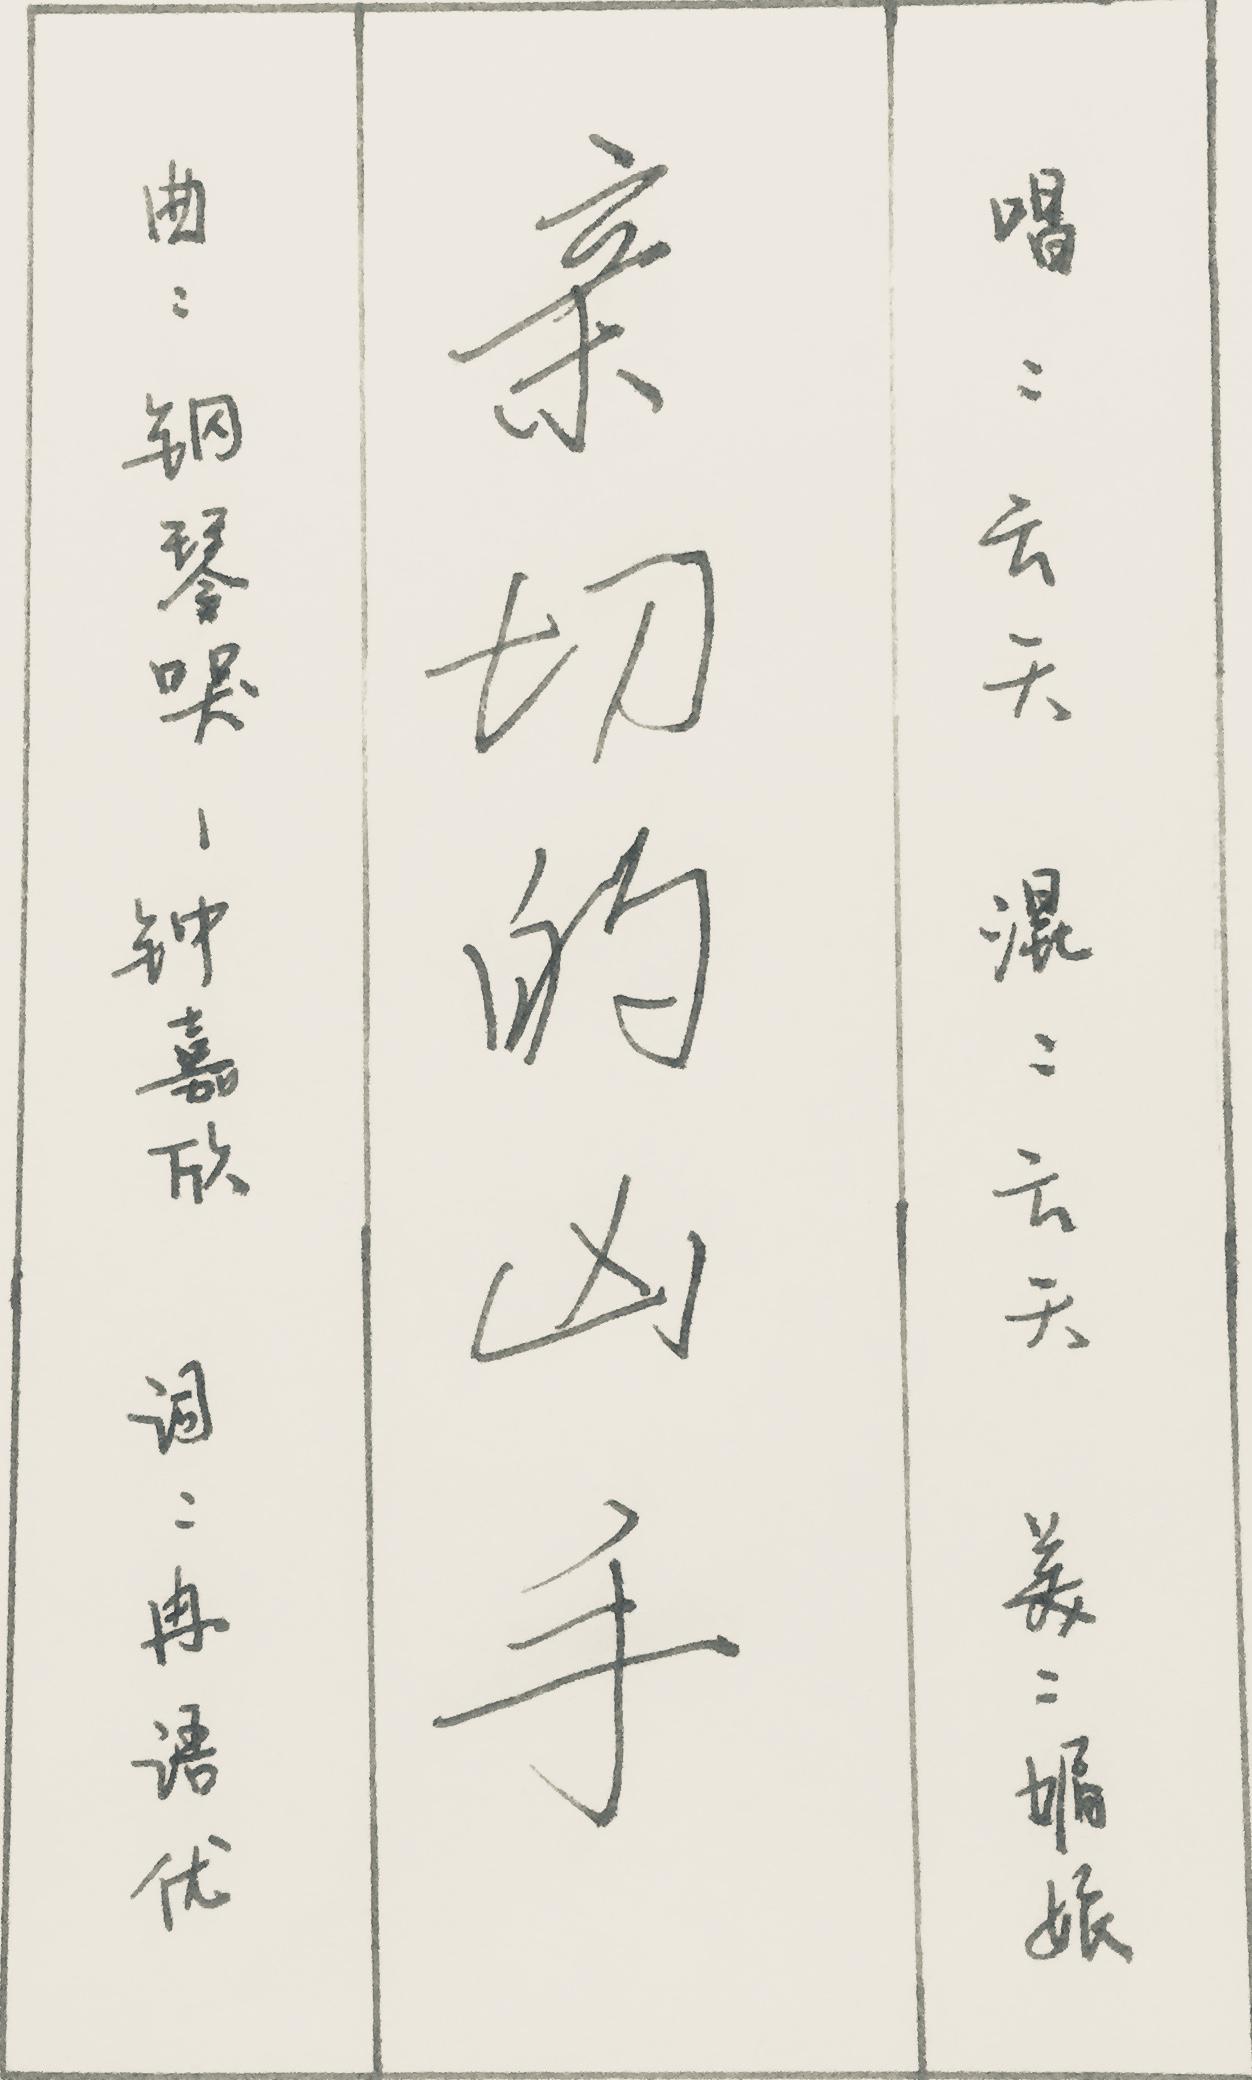 唱：云天 混：云天 美：媚娘
亲切的凶手
曲：钢琴哭-钟嘉欣 词：冉语优